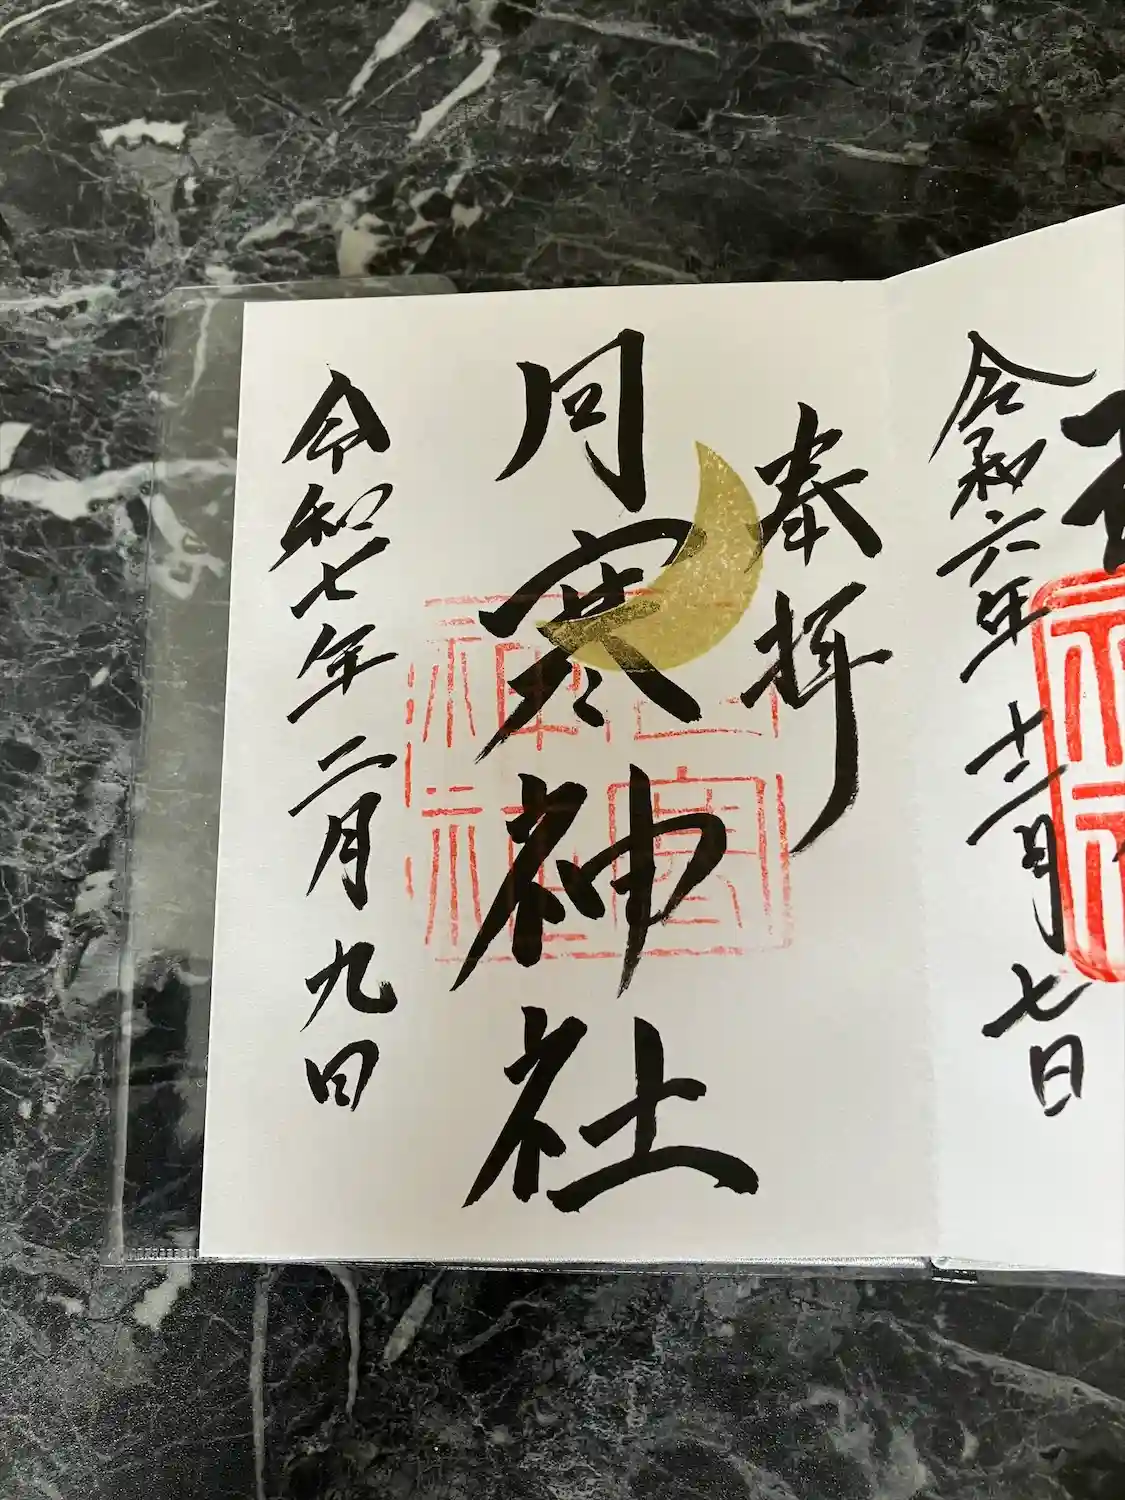 奉拝
月寒神社
令和七年二月九日
月寒神社
令和六年十二月七日